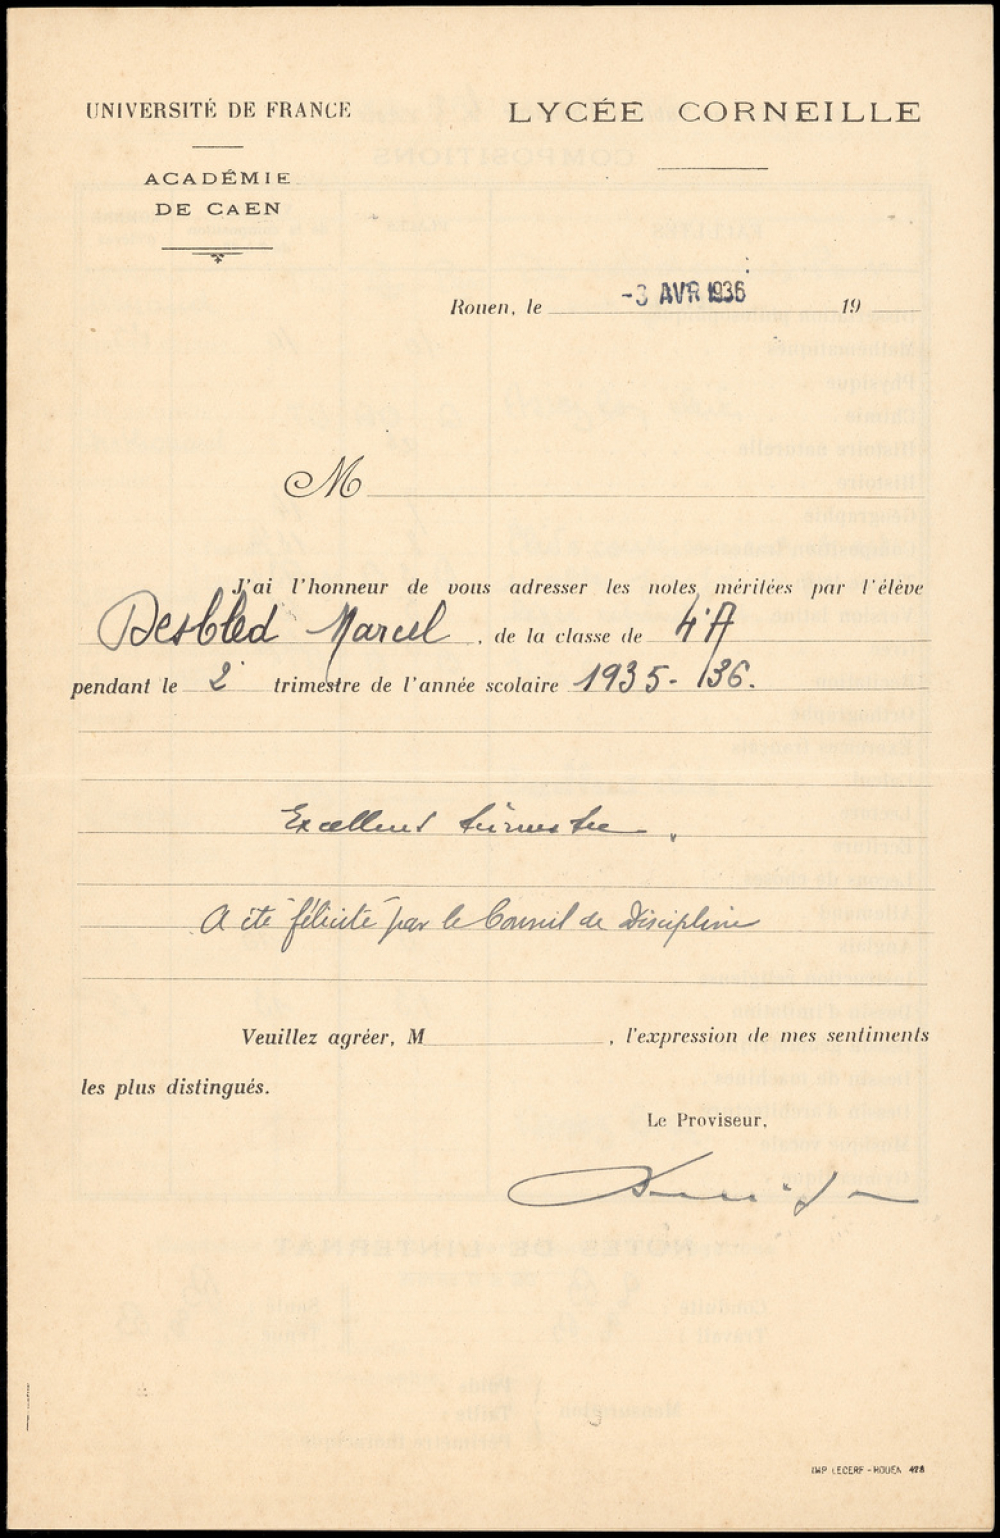 UNIVERSITÉ DE FRANCE
ACADÉMIE
DE CAEN
LYCÉE CORNEILLE
Rouen, le -3 AVR 1936 19
M
J'ai l'honneur de vous adresser les notes méritées par l'élève
Desbled Marcel, de la classe de 4e A
pendant le 2e trimestre de l'année scolaire 1935-36.
Excellent trimestre.
A été félicité par le Conseil de Discipline
Veuillez agréer, M , l'expression de mes sentiments
les plus distingués.
Le Proviseur,
IMP LECERF - ROUEN 428